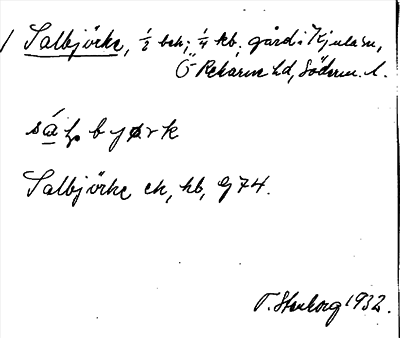 / Salbjörke, ½ bek; ¼ kb. gård i Kjula sn,
Ö Rekarne hd, Söderm. l.
sálbyørk
Salbjörke ek, kb, G 74.
T. Stenborg 1932.